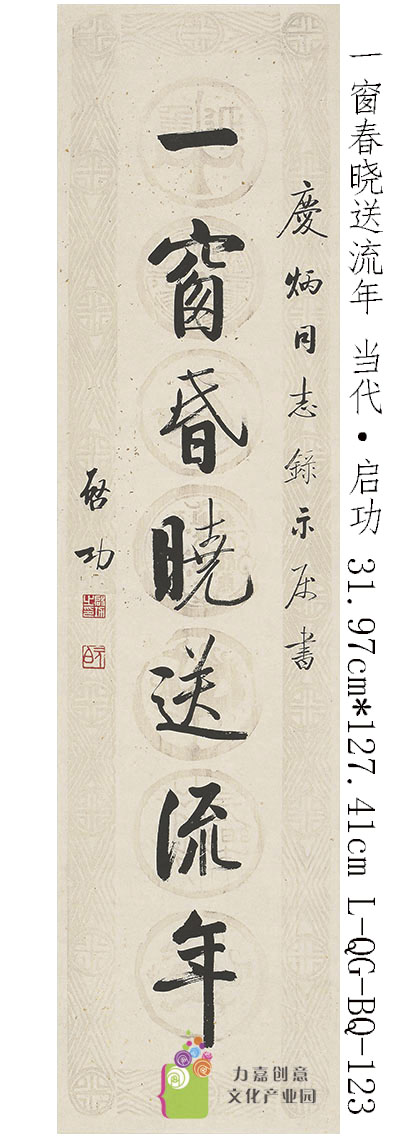 一窗春晓送流年 当代·启功 31.97cm*127.41cm L-QG-BQ-123
慶炳同志錄示属書
一窗昏曉送流年
啓功
力嘉创意
文化产业园